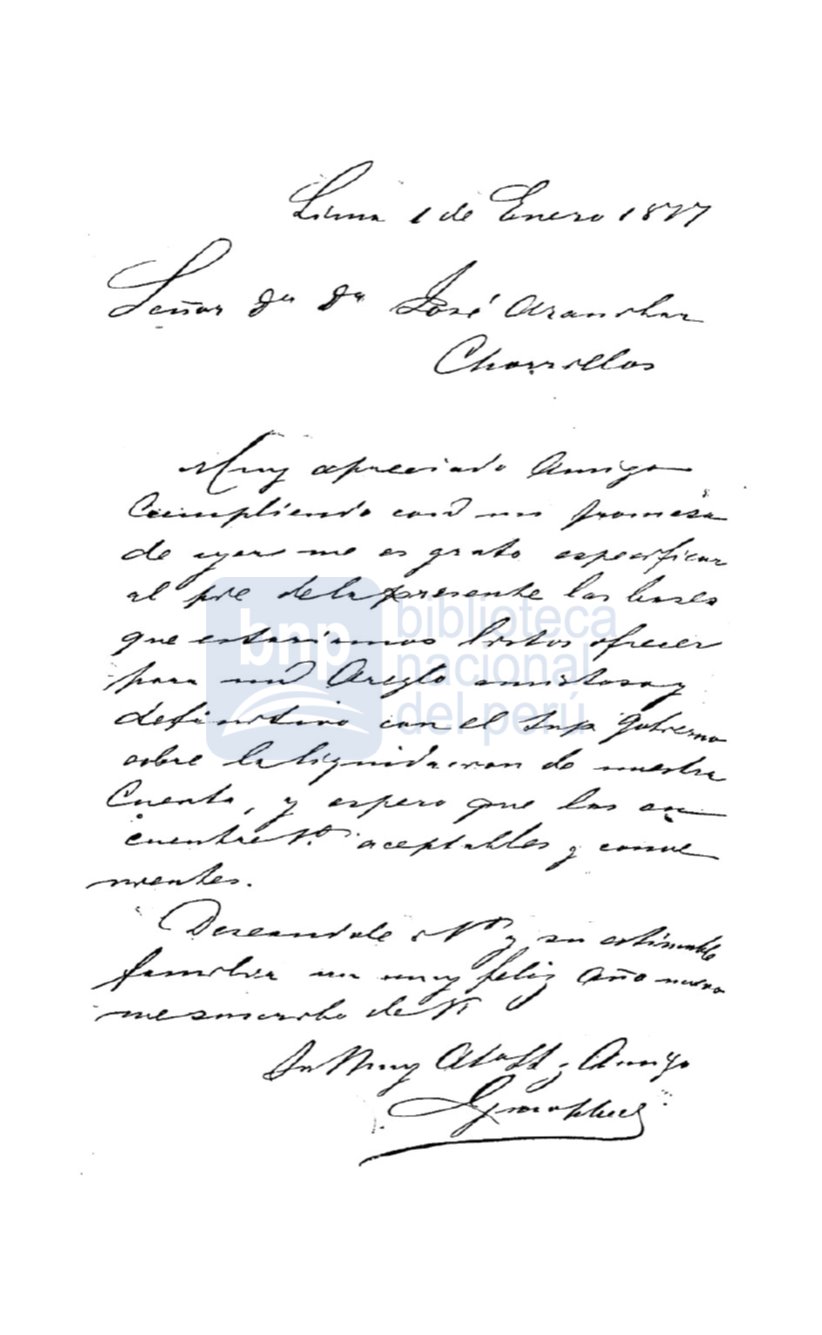 Lima 1 de Enero 1877
Señor Dn Dn José Aranibar
Chorrillos
Muy apreciado Amigo
Cumpliendo con mi promesa
de ayer me es grato especificar
al pie de la presente las bases
que estariamos listos ofrecer
para un Areglo amistoso y
definitivo con el Sup Gobierno
sobre la liquidacion de nuestra
Cuenta, y espero que las en
cuentre V. aceptables y conve
nientes.
Deseandole á V y su estimable
familia un muy feliz año nuevo
me suscribo de V
Su Muy Atto SS y Amigo
bnp biblioteca
nacional
del perú